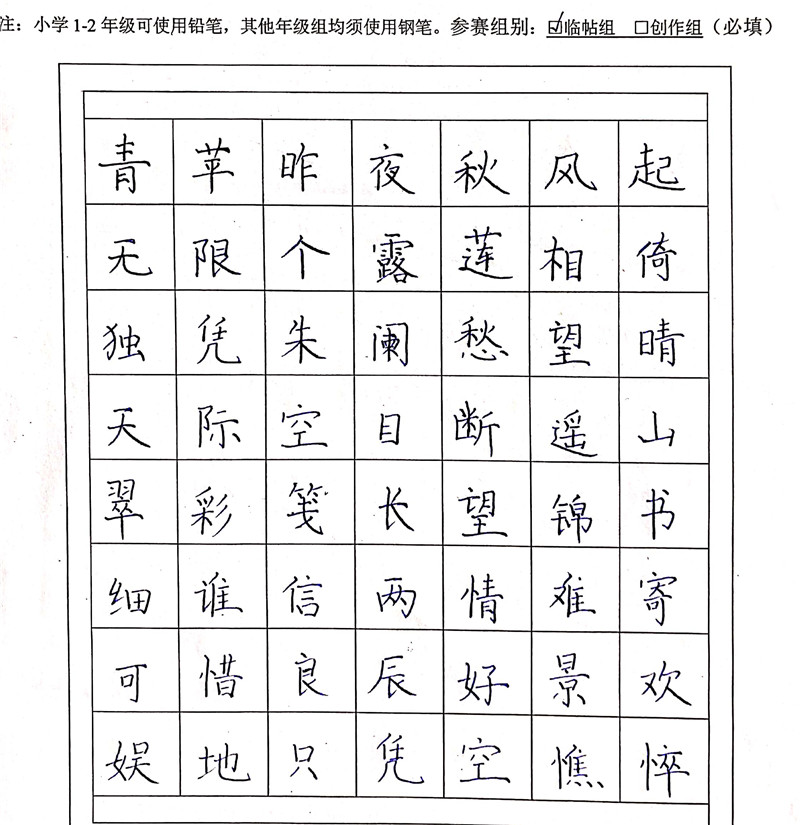 注：小学1-2年级可使用铅笔，其他年级组均须使用钢笔。参赛组别：☑临帖组 □创作组（必填）
青苹昨夜秋风起
无限个露莲相倚
独凭朱阑愁望晴
天际空目断遥山
翠彩笺长望锦书
细谁信两情难寄
可惜良辰好景欢
娱地只凭空憔悴